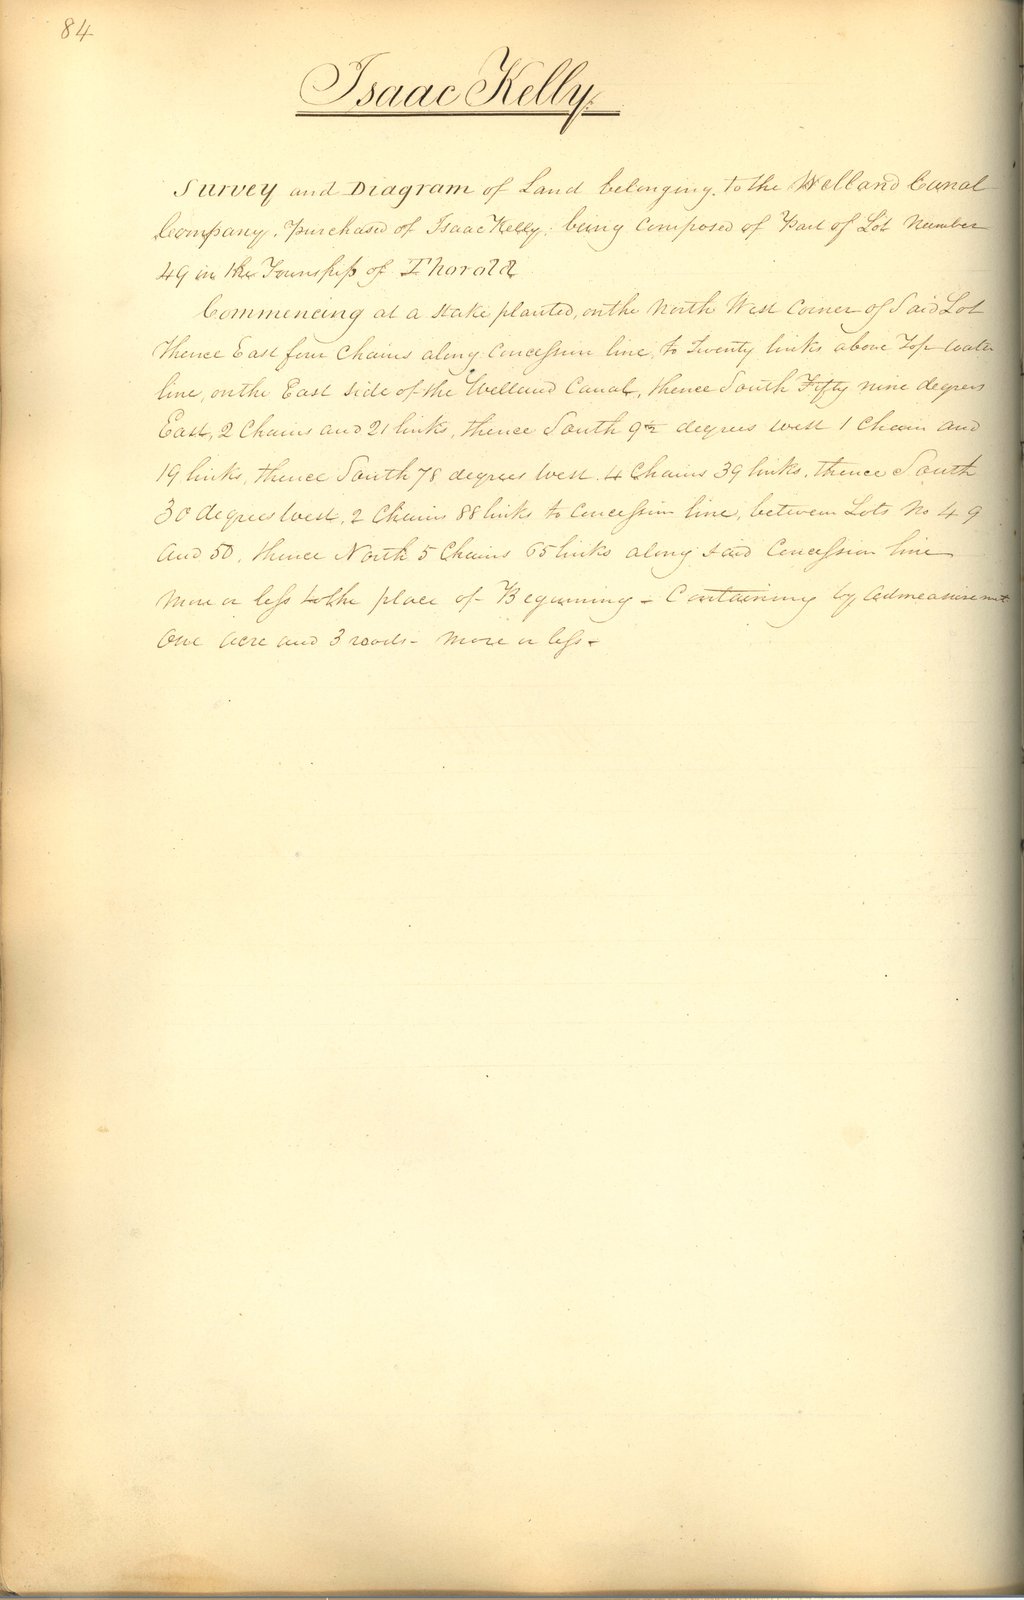 84
Isaac Kelly.
Survey and Diagram of Land belonging to the Welland Canal
Company, purchased of Isaac Kelly, being composed of Part of Lot Number
49 in the Township of Thorold
Commencing at a stake planted, on the North West corner of Said Lot
thence East four Chains along concession line, to Twenty links above Top water
line, on the East side of the Welland Canal, thence South Fifty nine degrees
East, 2 Chains and 21 links, thence South 9½ degrees west 1 Chain and
19 links, thence South 78 degrees West. 4 Chains 39 links, thence South
30 degrees West, 2 Chains 88 links to concession line, between Lots No 49
and 50, thence North 5 Chains 65 links along said Concession line
more or less to the place of Beginning - Containing by admeasurement
One acre and 3 roods - more or less -